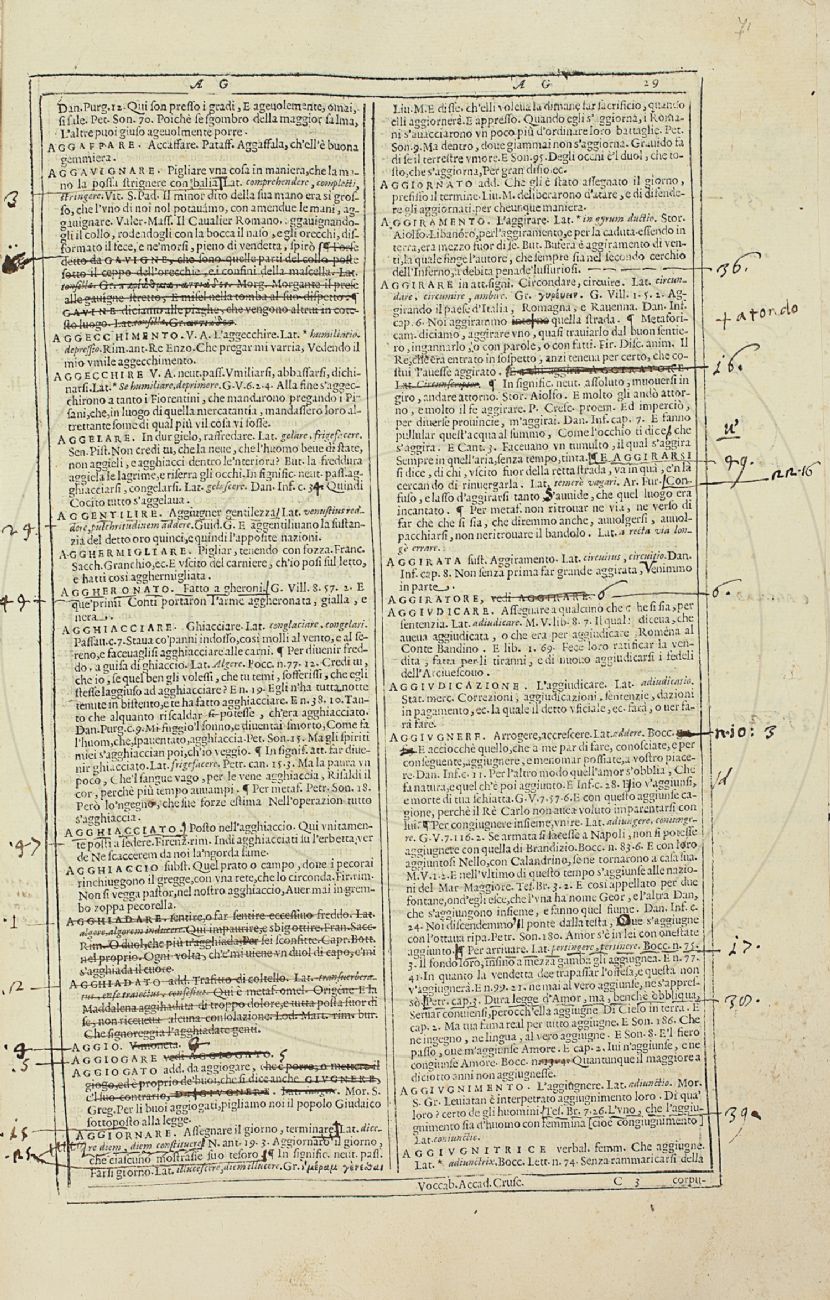 71
A G
Dan. Purg. 12. Qui son presso i gradi, E ageuolemente, omai,
si sale. Pet. Son. 70. Poichè se sgombro della maggior salma,
L'altre puoi giuso ageuolmente porre.
AGGAFFARE. Accaffare. Pataff. Aggaffala, ch'ell'è buona
gemmiera.
AGGAVIGNARE. Pigliare vna cosa in maniera, che la ma-
no la possa strignere con balìa Lat. comprehendere, complecti,
stringere. Vit. S. Pad. Il minor dito della sua mano era sì gros-
so, che l'vno di noi nol potauamo, con amendue le mani, ag-
gauignare. Valer. Mass. Il Caualier Romano, aggauignando-
gli il collo, rodendogli con la bocca il naso, e gli orecchi, dis-
formato il fece, e ne'morsi, pieno di vendetta, spirò ¶ Forse
detto da GAVIGNE, che sono quelle parti del collo poste
sotto il ceppo dell'orecchie, e i confini della mascella. Lat.
tonsillæ. Gr. Morg. Morgante il prese
alle gauigne stretto, E misel nella tomba al suo dispetto. ¶
GAVINE diciamo alle piaghe, che vengono altrui in cote-
sto luogo. Lat. tonsillæ. Gr.
AGGECCHIMENTO. V. A. L'aggecchire. Lat. * humiliatio.
depressio. Rim. ant. Re Enzo. Che pregar mi varria, Vedendo il
mio vmile aggecchimento.
AGGECCHIRE V. A. neut. pass. Vmiliarsi, abbassarsi, dichi-
narsi. Lat. * Se humiliare, deprimere. G. V. 6. 2. 4. Alla fine s'aggec-
chirono a tanto i Fiorentini, che mandarono pregando i Pi-
sani, che, in luogo di quella mercatantia, mandassero loro al-
trettante some di qual più vil cosa vi fosse.
AGGELARE. In dur gielo, raffredare. Lat. gelare, frigefacere.
Sen. Pist. Non credi tu, che la neue, che l'huomo beue di state,
non aggieli, e agghiacci dentro le'nteriora? But. la freddura
aggiela le lagrime, e riserra gli occhi. In signific. neut. pass. ag-
ghiacciarsi, congelarsi. Lat. gelascere. Dan. Inf. c. 34. Quindi
Cocito tutto s'aggelaua.
AGGENTILIRE. Aggiugner gentilezza Lat. venustius red-
dere, pulchritudinem addere. Guid. G. E aggentiliuano la sustan-
zia del detto oro quinci, e quindi l'apposite nazioni.
AGGHERMIGLIARE. Pigliar, tenendo con fozza. Franc.
Sacch. Granchio, ec. E vscito del carniere, ch'io posi sul letto,
e hatti così agghermigliata.
AGGHERONATO. Fatto a gheroni. G. Vill. 8. 57. 2. E
que'primi Conti portaron l'arme aggheronata, gialla, e
nera.
AGGHIACCIARE. Ghiacciare. Lat. conglaciare, congelari.
Passau. c. 7. Staua co'panni indosso, così molli al vento, e al se-
reno, e faceuaglisi agghiacciare alle carni. ¶ Per diuenir fred-
do, a guisa di ghiaccio. Lat. Algere. Bocc. n. 77. 12. Credi tu,
che io, se quel ben gli volessi, che tu temi, sofferissi, che egli
stesse laggiuso ad agghiacciare? E n. 19. Egli n'ha tutta notte
tenute in bistento, e te ha fatto agghiacciare. E n. 38. 10. Tan-
to che alquanto riscaldar si potesse, ch'era agghiacciato.
Dan. Purg. c. 9. Mi fuggìo'l sonno, e diuentai smorto, Come fa
l'huom, che, spauentato, agghiaccia. Pet. Son. 15. Ma gli spiriti
miei s'agghiaccian poi, ch'io veggio. ¶ In signif. att. far diue-
nir ghiacciato. Lat. frigefacere. Petr. can. 15. 3. Ma la paura vn
poco, Che'l sangue vago, per le vene agghiaccia, Risaldi il
cor, perchè più tempo auuampi. ¶ Per metaf. Petr. Son. 18.
Però lo'ngegno, che sue forze estima Nell'operazion tutto
s'agghiaccia.
AGGHIACCIATO. Posto nell'agghiaccio. Qui vnitamen-
te posti a sedere. Firenz. rim. Indi agghiacciati su l'erbetta ver
de Ne scacceremo da noi la'ngorda fame.
AGGHIACCIO sust. Quel prato o campo, doue i pecorai
rinchiuggono il gregge, con vna rete, che lo circonda. Fir. rim.
Non si vegga pastor, nel nostro agghiaccio, Auer mai in grem-
bo zoppa pecorella.
AGGHIADARE. sentire, o far sentire eccessiuo freddo. Lat.
algere, algorem inducere. Qui impaurire, e sbigottire. Fran. Sacc.
Rim. O duol, che più t'agghiada, Per sei sconfitte. Capr. Bott.
nel proprio. Ogni volta, ch'e'mi uiene vn duol di capo, e'mi
s'agghiada il cuore.
AGGHIADATO add. Trafitto di coltello. Lat.
Qui è metaf. omel. Origene E la
Maddalena agghiadata di troppo dolore, e tutta posta fuor di
se, non riceueua alcuna consolazione. Lod. Mart. rim. bur.
Che signoreggia l'agghiadate genti.
AGGIO. V. moneta. 6
AGGIOGARE vedi AGGIOGATO. 5
AGGIOGATO add. da aggiogare, che è porre, o mettere il
giogo, ed è proprio de'buoi, che si dice anche GIVGNERE,
e'l suo contrario, DISGIVGNERE. Lat. iungere. Mor. S.
Greg. Per li buoi aggiogati, pigliamo noi il popolo Giudaico
sottoposto alla legge.
AGGIORNARE. Assegnare il giorno, terminare Lat. dice-
re diem, diem constituere N. ant. 19. 3. Aggiornaro il giorno,
che ciascuno mostrasse suo tesoro ¶ In signific. neut. pass.
Farsi giorno. Lat. illucescere, diem illucere. Gr.
3
29.
49
.97
.1
.12
.8
.5
.15
A G 29
Liu. M. E disse, ch'elli voleua la dimane far sacrificio, quando
elli aggiornerà. E appresso. Quando egli s'aggiorna, i Roma-
ni s'auacciarono vn poco più d'ordinare loro battaglie. Pet.
Son. 9. Ma dentro, doue giammai non s'aggiorna. Grauido fa
di se il terrestre vmore. E Son. 95. Degli occhi è'l duol, che to-
sto, che s'aggiorna, Per gran disio ec.
AGGIORNATO add. Che gli è stato assegnato il giorno,
prefisso il termine. Liu. M. deliberarono d'atare, e di difende-
re gli aggiornati, per cheunque maniera.
AGGIRAMENTO. L'aggirare. Lat. * in gyrum ductio. Stor.
Aiolfo. Libanoro, per l'aggiramento, e per la caduta essendo in
terra, era mezzo fuor di se. But. Bufera è aggiramento di ven-
ti, la quale finge l'autore, che sempre sia nel secondo cerchio
dell'Inferno, a debita pena de'lussuriosi.
AGGIRARE in att. signi. Circondare, circuire. Lat. circun-
dare, circumire, ambire. Gr. G. Vill. 1. 5. 2. Ag-
girando il paese d'Italia, Romagna, e Rauenna. Dan. Inf.
cap. 6. Noi aggirammo intorno quella strada. ¶ Metafori-
cam. diciamo, aggirare vno, quasi trauiarlo dal buon sentie-
ro, ingannarlo, o con parole, o con fatti. Fir. Disc. anim. Il
Re, che era entrato in sospetto, anzi tenea per certo, che co-
stui l'auesse aggirato. AGGIRATORE.
Lat. Circunscriptor. ¶ In signific. neut. assoluto, muouersi in
giro, andare attorno. Stor. Aiolfo. E molto gli andò attor-
no, e molto il fe aggirare. P. Cresc. proem. Ed imperciò,
per diuerse prouincie, m'aggirai. Dan. Inf. cap. 7. E fanno
pullular quest'acqua al summo, Come l'occhio ti dice, u' che
s'aggira. E Cant. 3. Faceuano vn tumulto, il qual s'aggira
Sempre in quell'aria, senza tempo, tinta. ¶ E AGGIRARSI
si dice, di chi, vscito fuor della retta strada, va in quà, e'n là
cercando di rinuergarla. Lat. temerè vagari. Ar. Fur. Con-
fuso, e lasso d'aggirarsi tanto S'auuide, che quel luogo era
incantato. ¶ Per metaf. non ritrouar ne via, ne verso di
far che che si sia, che diremmo anche, auuolgersi, auuol-
pacchiarsi, non ne ritrouare il bandolo. Lat. a recta via lon-
gè errare.
AGGIRATA sust. Aggiramento. Lat. circuitus, circuitio. Dan.
Inf. cap. 8. Non senza prima far grande aggirata, Venimmo
in parte.
AGGIRATORE, vedi AGGIRARE. 6
AGGIVDICARE. Assegnare a qualcuno che che si sia, per
sentenzia. Lat. adiudicare. M. V. lib. 8. 7. Il qual diceua, che
aueua aggiudicata, o che era per aggiudicare Romena al
Conte Bandino. E lib. 1. 69. Fece loro ratificar la ven-
dita, fatta per li tiranni, e di nuouo aggiudicarsi i fedeli
dell'Arciuescouo.
AGGIVDICAZIONE. L'aggiudicare. Lat. adiudicatio.
Stat. merc. Correzioni, aggiudicazioni, sentenzie, dazioni
in pagamento, ec. la quale il detto vficiale, ec. farà, o uer fa-
rà fare.
AGGIVGNERE. Arrogere, accrescere. Lat. addere. Bocc.
E acciocchè quello, che a me par di fare, conosciate, e per
conseguente, aggiugnere, e menomar possiate, a vostro piace-
re. Dan. Inf. c. 11. Per l'altro modo quell'amor s'obblia, Che
fa natura, e quel ch'è poi aggiunto. E Inf. c. 28. E io v'aggiunsi,
e morte di tua schiatta. G. V. 7. 57. 6. E con questo aggiunse ca-
gione, perchè il Rè Carlo non auea voluto imparentarsi con
lui. ¶ Per congiugnere insieme, vnire. Lat. adiungere, coniunge-
re. G. V. 7. 116. 2. Se armata si facesse a Napoli, non si potesse
aggiugnere con quella di Brandizio. Bocc. n. 83. 6. E con loro
aggiuntosi Nello, con Calandrino, se ne tornarono a casa sua.
M. V. 1. 2. E nell'vltimo di questo tempo s'aggiunse alle nazio-
ni del Mar Maggiore. Tes. Br. 3. 2. E così appellato per due
fontane, ond'egli esce, che l'vna ha nome Geor, e l'altra Dan,
che s'aggiungono insieme, e fanno quel fiume. Dan. Inf. c.
24. Noi discendemmo 'l ponte dalla testa, Oue s'aggiugne
con l'ottaua ripa. Petr. Son. 180. Amor s'è in lei con onestate
aggiunto. ¶ Per arriuare. Lat. pertingere, pertinere. Bocc. n. 75.
3. Il fondo loro, insino a mezza gamba gli aggiugnea. E n. 77.
41. In quanto la vendetta dee trapassar l'offesa, e questa non
v'aggiugnerà. E n. 99. 21. ne mai al vero aggiunse, ne s'appres-
sò. Petr. cap. 3. Dura legge d'Amor, ma, benchè obbliqua,
Seruar conuiensi, perocch'ella aggiugne Di Cielo in terra. E
cap. 2. Ma tua fama real per tutto aggiugne. E Son. 186. Che
ne ingegno, ne lingua, al vero aggiugne. E Son. 8. E'l fiero
passo, oue m'aggiunse Amore. E cap. 2. lui n'aggiunse, e ne
congiunse Amore. Bocc. Quantunque il maggiore a
diciotto anni non aggiugnesse.
AGGIVGNIMENTO. L'aggiugnere. Lat. adiunctio. Mor.
S. Gr. Leuiatan è interpetrato aggiugnimento loro. Di qua'
loro? certo de gli huomini. Tes. Br. 7. 26. L'vno, che l'aggiu-
gnimento sia d'huomo con femmina [cioè congiugnimento]
Lat. coniunctio.
AGGIVGNITRICE verbal. femm. Che aggiugne.
Lat. * adiunctrix. Bocc. Lett. n. 74. Senza rammaricarsi della
36.
+ a tondo
16.
u'
99.
22-16
6.
n. 10: 3
17.
30.
39
Voccab. Accad. Crusc. C 3 corpu-